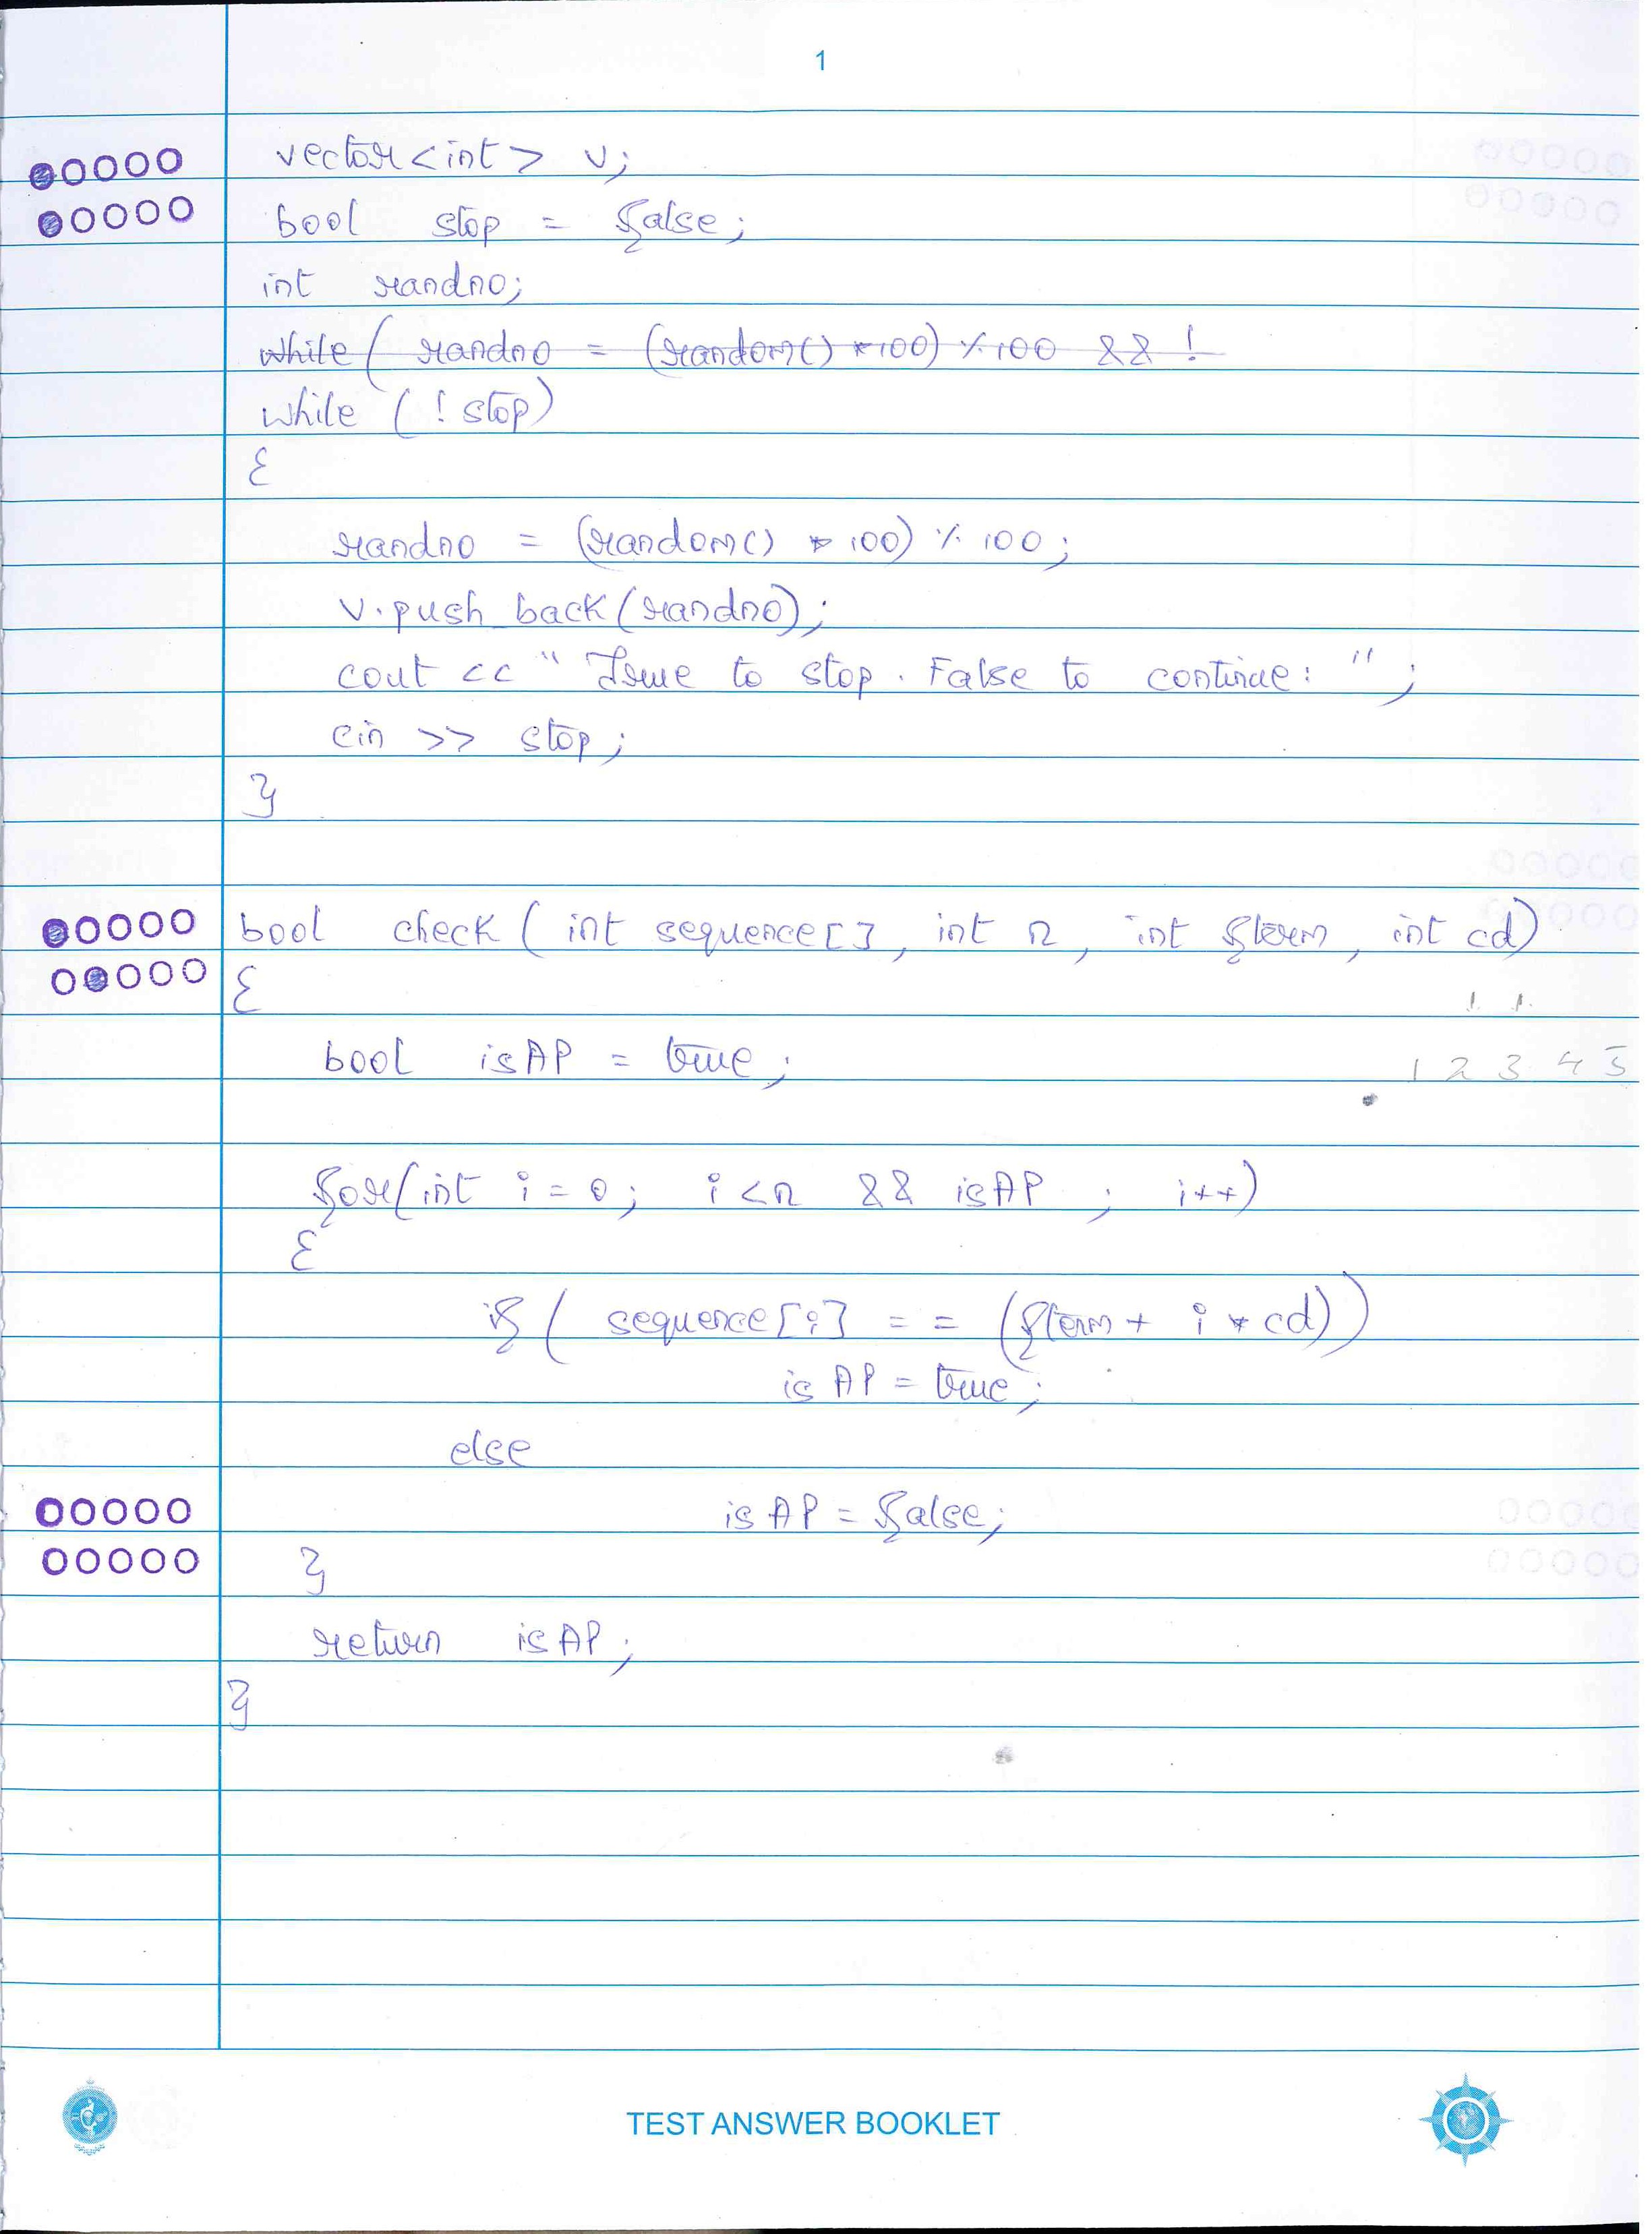 1
vector<int> v;
bool stop = false;
int randno;
while( randno = (random() *100) % 100 && !
while (! stop)
{
randno = (random() * 100) % 100;
v.push_back(randno);
cout << " True to stop. False to continue: " ;
cin >> stop;
}
bool check( int sequence[], int n, int fterm, int cd)
{
1 1
bool isAP = true;
1 2 3 4 5
for(int i = 0; i < n && isAP ; i++)
{
if( sequence[i] == (fterm + i * cd))
isAP = true;
else
isAP = false;
}
return isAP;
}
TEST ANSWER BOOKLET